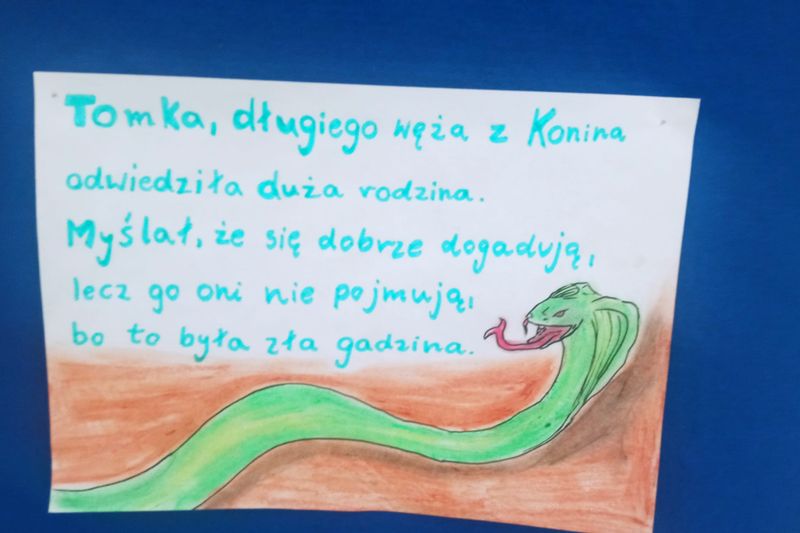 Tomka, długiego węża z Konina
odwiedziła duża rodzina.
Myślał, że się dobrze dogadują,
lecz go oni nie pojmują,
bo to była zła gadzina.